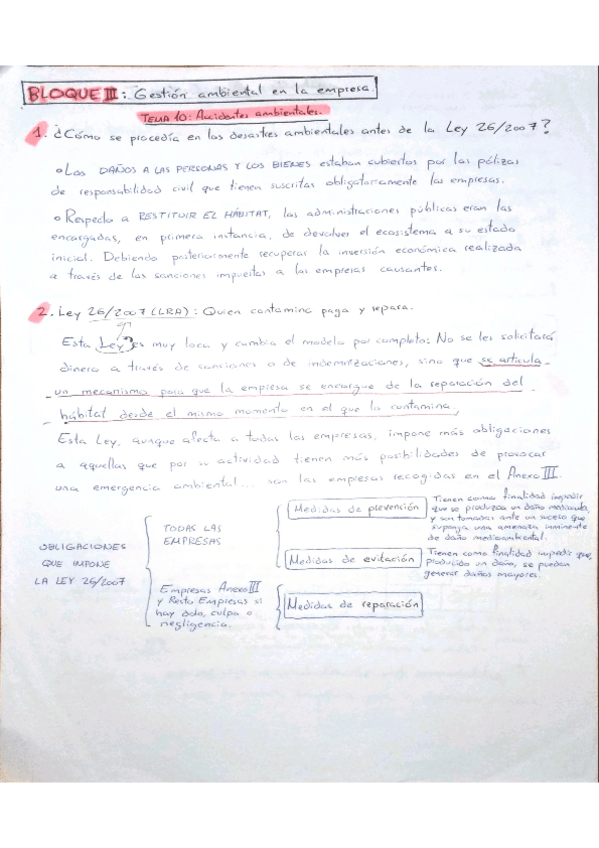 BLOQUE III: Gestión ambiental en la empresa.
TEMA 10: Accidentes ambientales.
1. ¿Cómo se procedía en los desastres ambientales antes de la Ley 26/2007?
• Los DAÑOS A LAS PERSONAS Y LOS BIENES estaban cubiertos por las pólizas
de responsabilidad civil que tienen suscritas obligatoriamente las empresas.
• Respecto a RESTITUIR EL HÁBITAT, las administraciones públicas eran las
encargadas, en primera instancia, de devolver el ecosistema a su estado
inicial. Debiendo posteriormente recuperar la inversión económica realizada
a través de las sanciones impuestas a las empresas causantes.
2. Ley 26/2007 (LRA): Quien contamina paga y repara.
Esta Ley es muy loca y cambia el modelo por completo: No se les solicitará
dinero a través de sanciones o de indemnizaciones, sino que se articula
un mecanismo para que la empresa se encargue de la reparación del
hábitat desde el mismo momento en el que la contamina.
Esta Ley, aunque afecta a todas las empresas, impone más obligaciones
a aquellas que por su actividad tienen más posibilidades de provocar
una emergencia ambiental... son las empresas recogidas en el Anexo III.
OBLIGACIONES
QUE IMPONE
LA LEY 26/2007
TODAS LAS
EMPRESAS
Medidas de prevención
Tienen como finalidad impedir
que se produzca un daño medioamb,
y son tomadas ante un suceso que
suponga una amenaza inminente
de daño medioambiental.
Medidas de evitación
Tienen como finalidad impedir que,
producido un daño, se puedan
generar daños mayores.
Empresas Anexo III
y Resto Empresas si
hay dolo, culpa o
negligencia.
Medidas de reparación